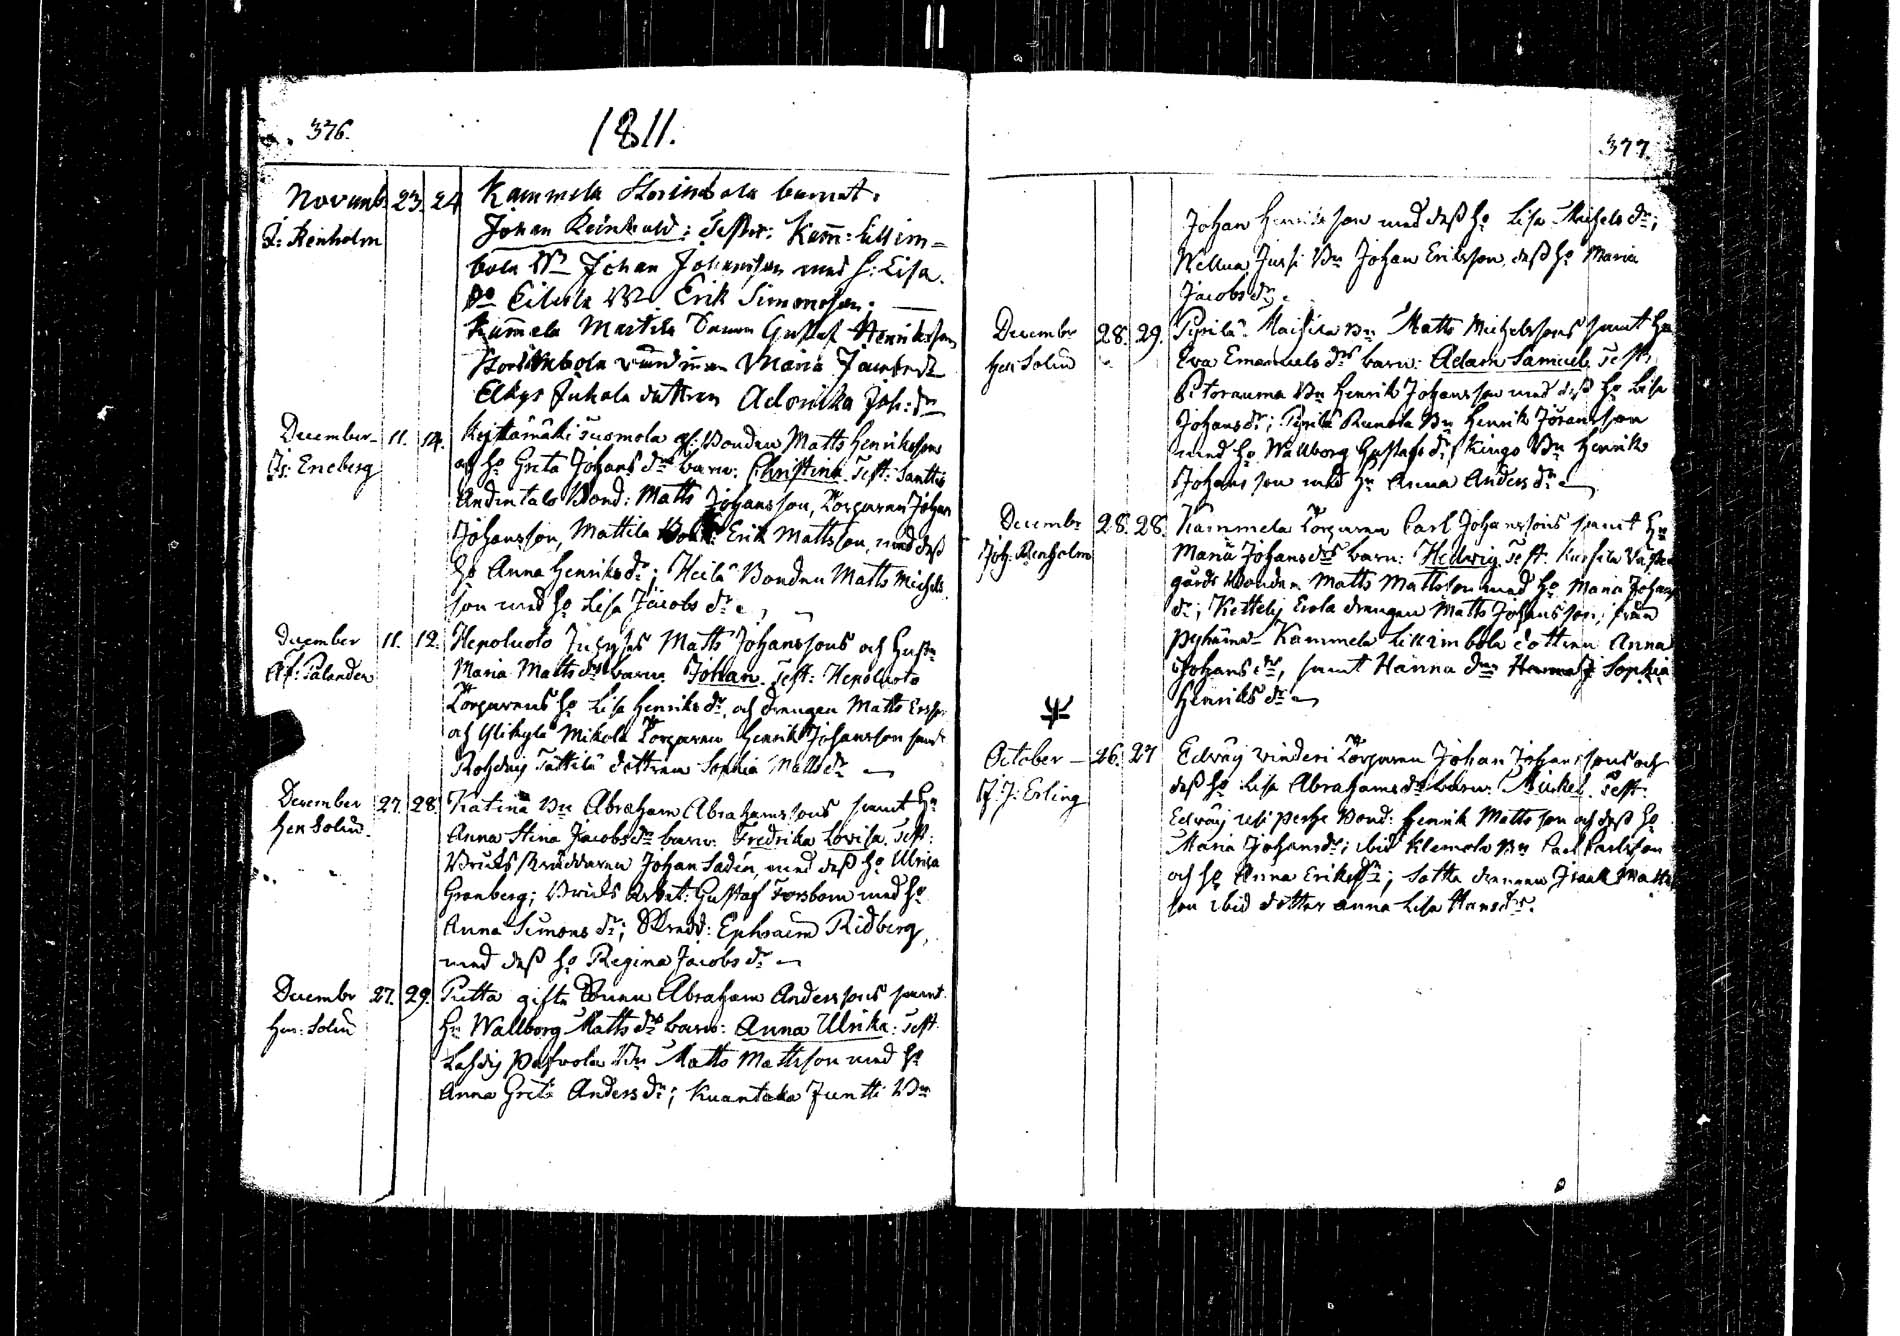 376.
1811.
Novemb. 23. 24 Kammela Storimbola barnet:
J: Renholm Johan Reinhold: Testes: Kam: Lillim=
bola Bn Johan Johansson med h: Lisa.
Do Eilola Bn Erik Simonsson;
Kammela Marttila Gustaf Henriksson
Storimbola Maria
Elkys Juhala dottren Adonika Joh: dr
December 11. 14. Suomola Bonden Matts Henrikssons
Is: Eneberg och ho Greta Johans drs barn: Christina Test: Santtio
Andintalo Bond: Matts Johansson, Torparen Johan
Johansson, Mattila Erik Mattsson, med dess
ho Anna Henriks dr; Heilä Bonden Matts Michels
son med ho Lisa Jacobs dr
December 11. 12. Hepoluoto Matts Johanssons och Hustr
Af: Palander Maria Matts drs barn Johan. Test: Hepoluoto
Torparens ho Lisa Henriks dr, och drengen Matts Ersson
och Ylikylä Mikola Torparen Henrik Johansson samt
Tättilä dottren Sophia Matts dr
December 27. 28. Katina Bn Abraham Abrahamssons samt hn
Hen Solin Anna Stina Jacobs drs barn: Fredrika Lovisa. Test:
Bruks Johan Sadén, med dess ho Ulrica
Granberg; Bruks Arbet: Gustaf Forsbom med ho
Anna Simons dr; Ephraim Ridberg,
med dess ho Regina Jacobs dr
December 27. 29. Putta gifte Abraham Anderssons samt
Hen: Solin hn Wallborg Matts drs barn: Anna Ulrika: Test.
Lahdis Bn Matts Mattsson med ho
Anna Greta Anders dr; Kuantaka Juntti Bn
377.
Johan Henriksson med dess ho Lisa Michels dr;
Nellua Jussi Bn Johan Eriksson, dess ho Maria
Jacobs dr
December 28. 29. Pyrilä Maisila Bn Matts Michelssons samt ho
Hen Solin Eva Emanuels drs barn: Adam Samuel Test:
Pitorauma Bn Henrik Johansson med dess ho Lisa
Johans dr; Pyrilä Runola Bn Henrik Jöransson
med ho Wallborg Gustafs dr, Kingo Bn Henrik
Johansson med hn Anna Anders dr
Decembr 28. 28. Kammela Torparen Carl Johanssons samt hn
Joh: Renholm Maria Johans drs barn: Hedwig Test: Kursila
gårds Bonden Matts Mattsson med ho Maria Johans
dr; Kettelij Erola drengen Matts Johansson; från
Pyhäma Kammela Lillimbola dottren Anna
Johans dr, samt Hanna Sophia
Henriks dr
October 26. 27 Edväij Vinderi Torparen Johan Johanssons och
J: Erling dess ho Lisa Abrahams drs barn: Mickel. Test:
Edväij Bond: Henrik Mattsson och dess ho
Maria Johans dr; ibid Klemola Bn Carl Carlsson
och ho Anna Eriks dr; Satta drengen Isaak Matts
son ibid dotter Anna Lisa Hans dr.